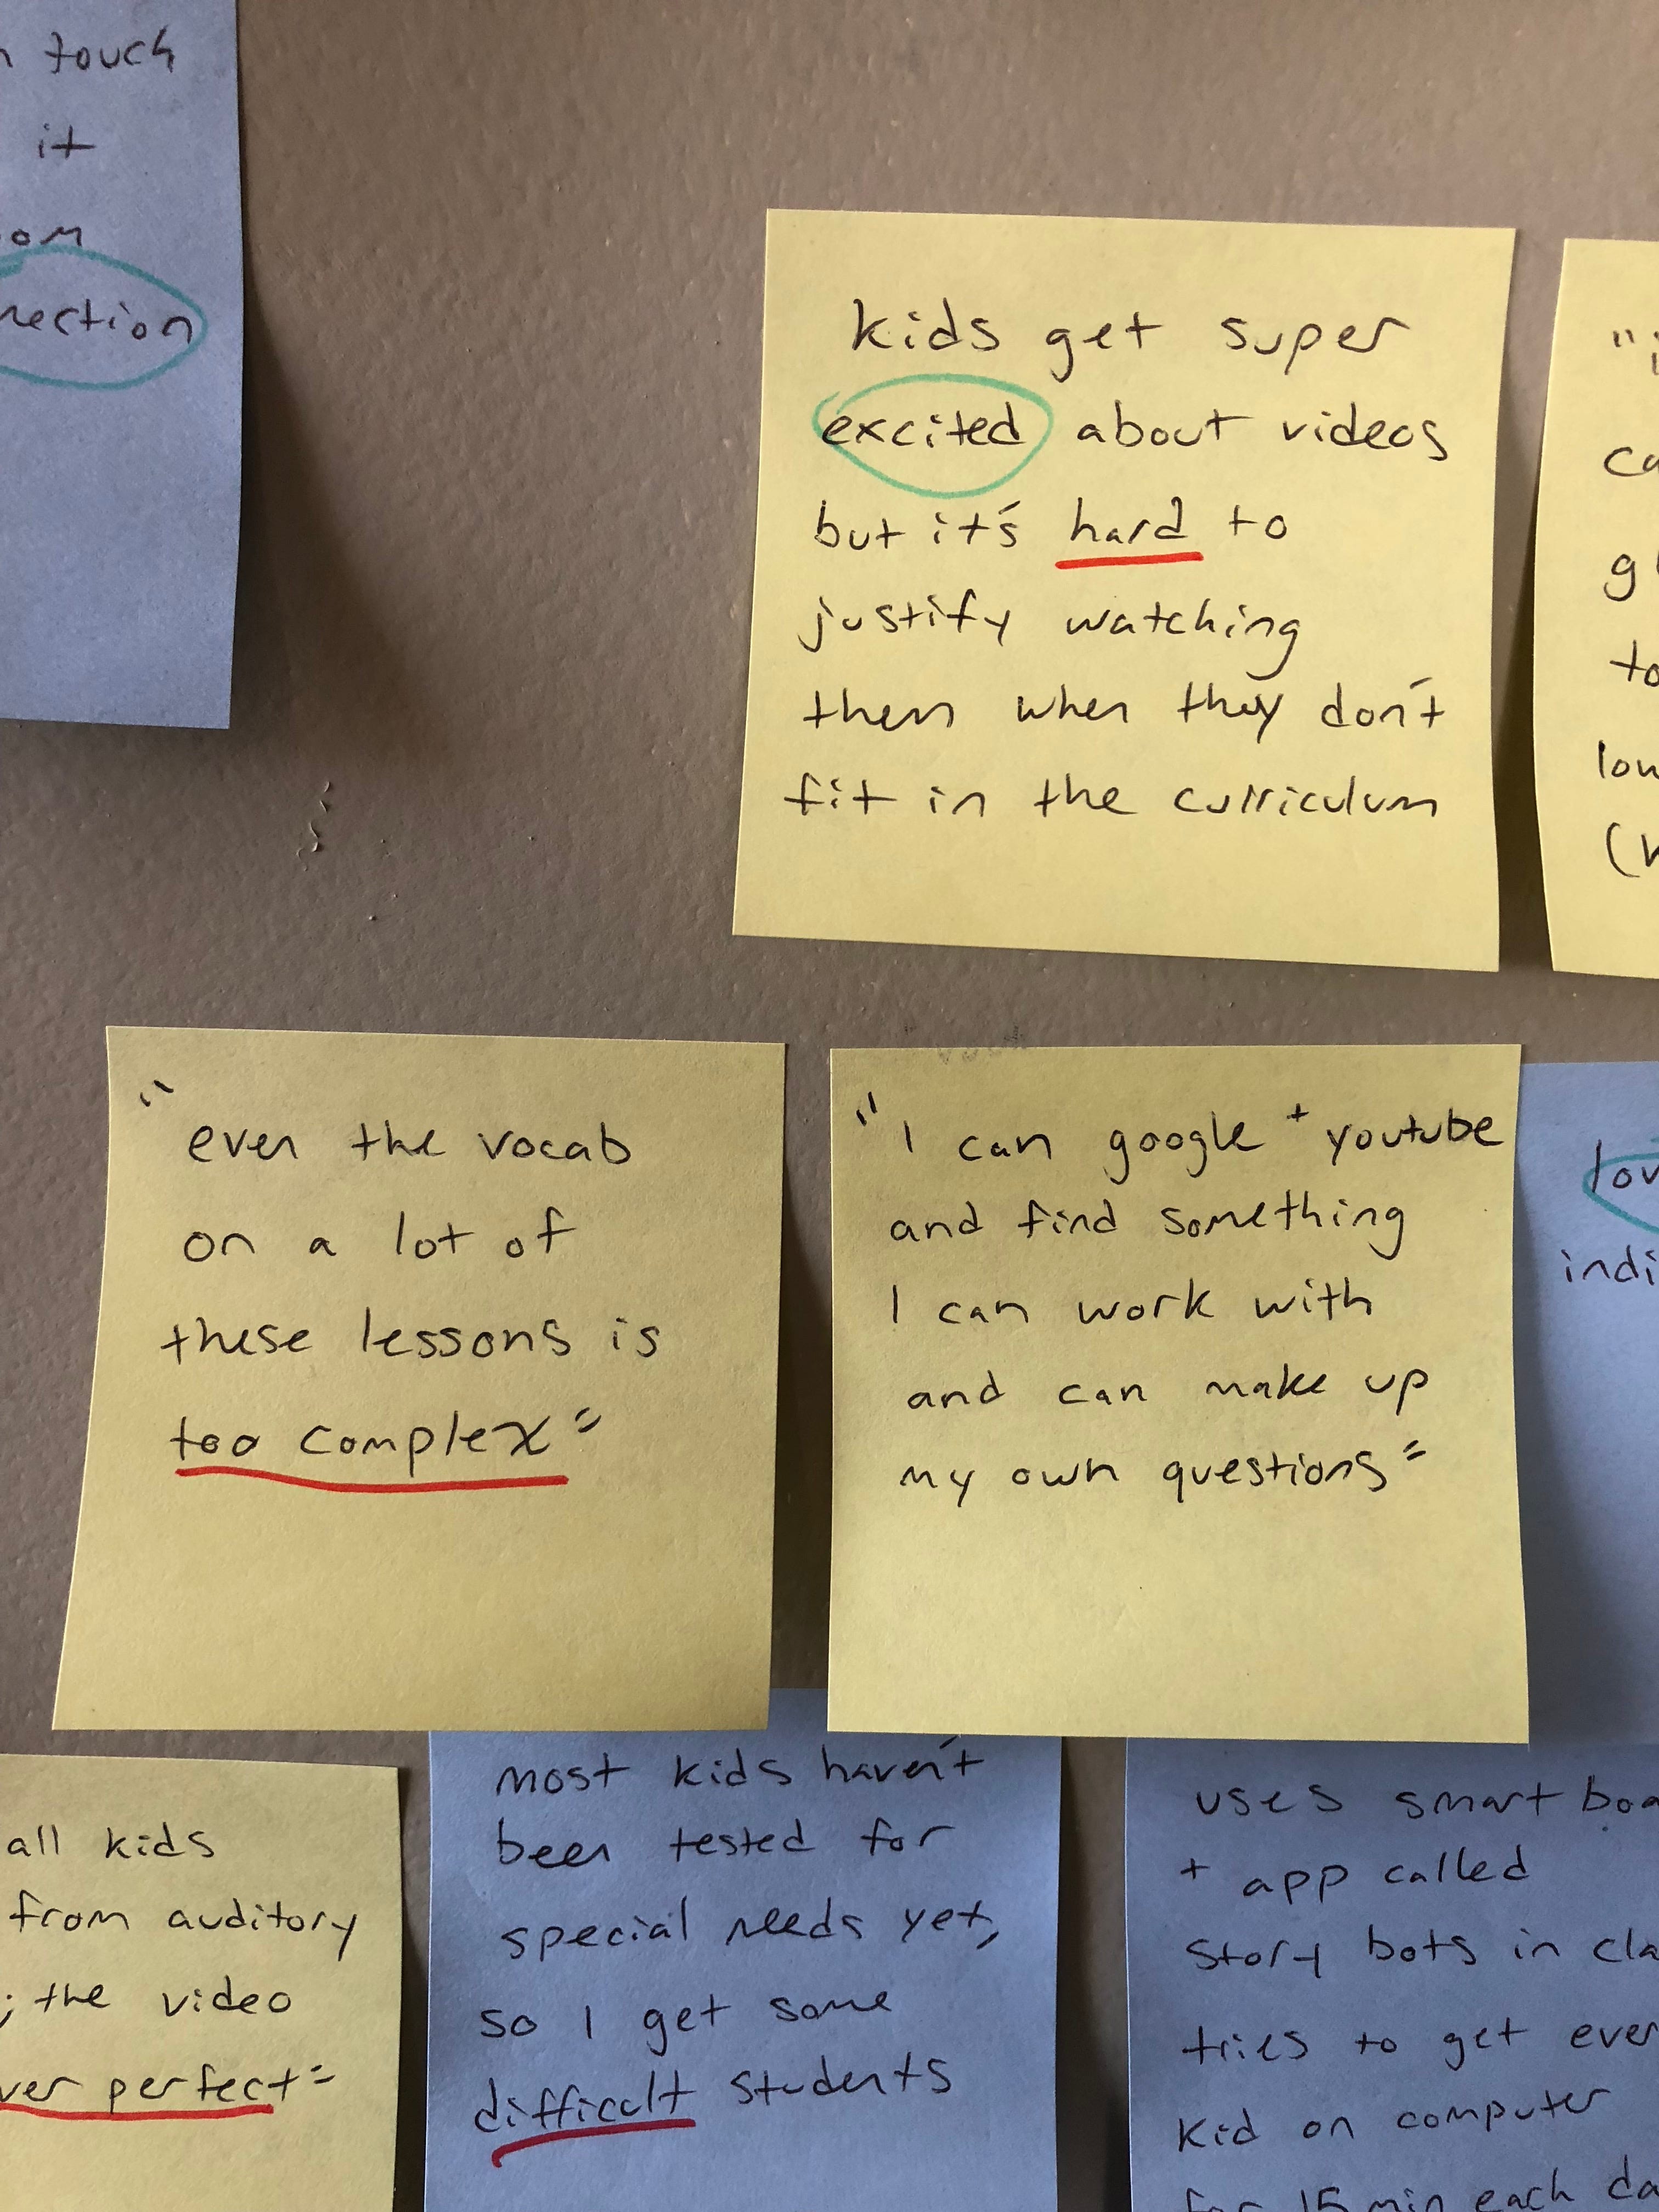 touch
it
kids get super
excited about videos
but it's hard to
justify watching
them when they don't
fit in the curriculum
to
"even the vocab
on a lot of
these lessons is
too complex"
"I can google + youtube
and find something
I can work with
and can make up
my own questions"
all kids
from auditory
; the video
perfect"
most kids haven't
been tested for
special needs yet,
so I get some
difficult students
uses smart
+ app called
story bots in
tries to get
kid on computer
for 15 min each